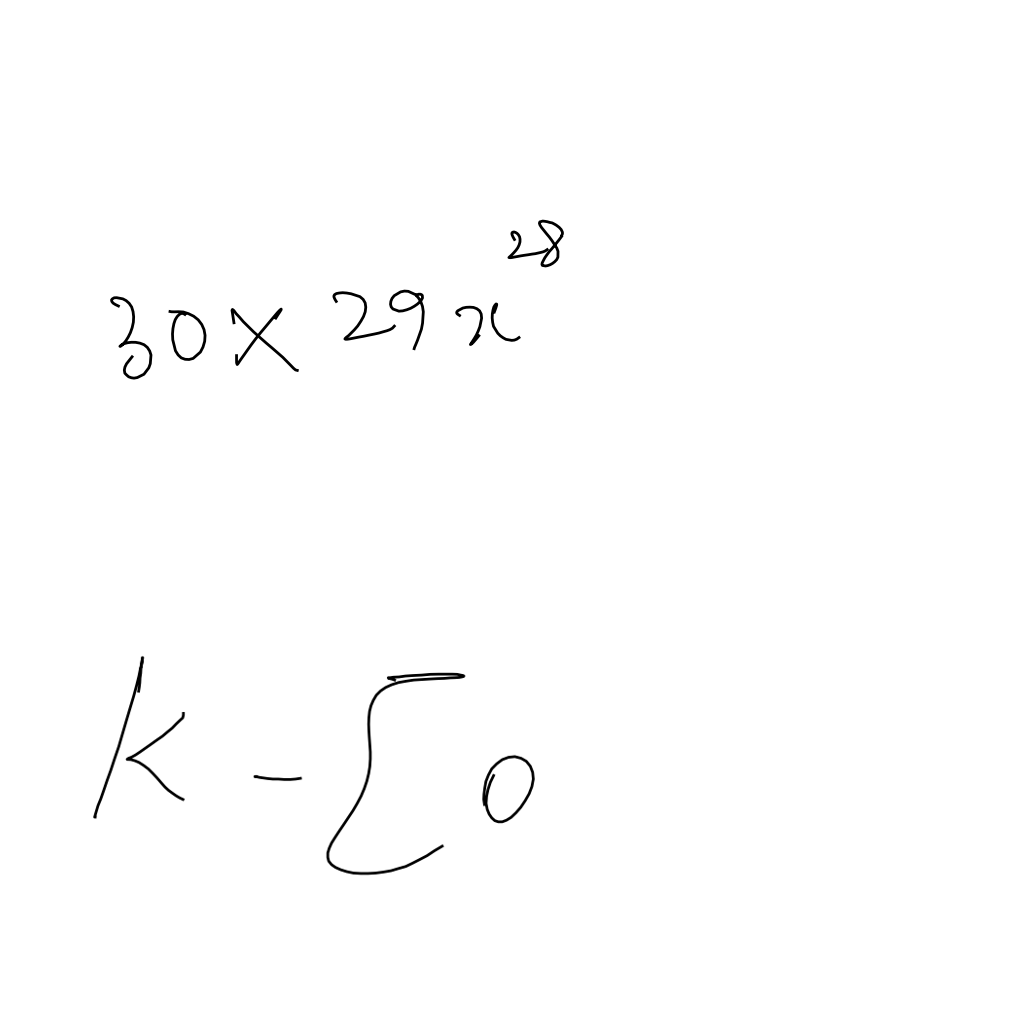 30 × 29 x^28
K - [ 0